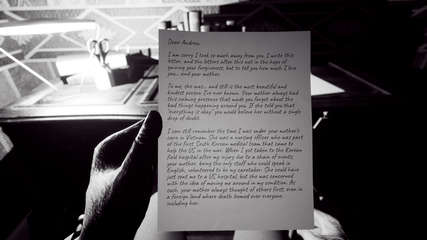 Dear Andrew,
I am sorry I took so much away from you. I write this
letter, and the letters after this not in the hope of
gaining your forgiveness, but to tell you how much I love
you... and your mother.
To me, she was... and still is the most beautiful and
kindest person I've ever known. Your mother always had
this calming presence that made you forget about the
bad things happening around you. If she told you that
"everything is okay" you would believe her without a single
drop of doubt.
I can still remember the time I was under your mother's
care in Vietnam. She was a nursing officer who was part
of the first South Korean medical team that came to
help the US in the war. When I got taken to the Korean
field hospital after my injury due to a chain of events,
your mother, being the only staff who could speak in
English, volunteered to be my caretaker. She could have
just sent me to a US hospital, but she was concerned
with the idea of moving me around in my condition. As
ever, your mother always thought of others first, even in
a foreign land where death loomed over everyone,
including her.